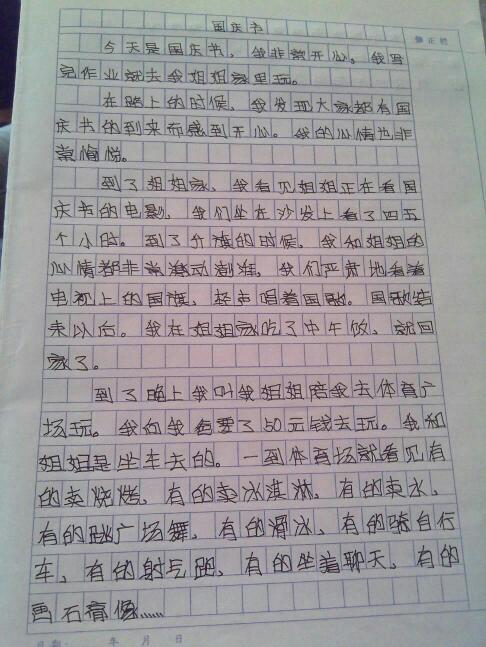 国庆节
修正栏
今天是国庆节，我非常开心。我写
完作业就去我姐姐家里玩。
在路上的时候，我发现大家都有国
庆节的到来而感到开心。我的心情也非
常愉悦。
到了姐姐家，我看见姐姐正在看国
庆节的电影，我们坐在沙发上看了四五
个小时。到了升旗的时候，我和姐姐的
心情都非常激动澎湃，我们严肃地看着
电视上的国旗，轻声唱着国歌。国歌结
束以后。我在姐姐家吃了中午饭，就回
家了。
到了晚上我叫我姐姐陪我去体育广
场玩。我向我爸要了50元钱去玩。我和
姐姐是坐车去的。一到体育场就看见有
的卖烧烤，有的卖冰淇淋，有的卖水，
有的跳广场舞，有的滑冰，有的骑自行
车，有的射气跑，有的坐着聊天，有的
画石膏像……
日期： 年 月 日